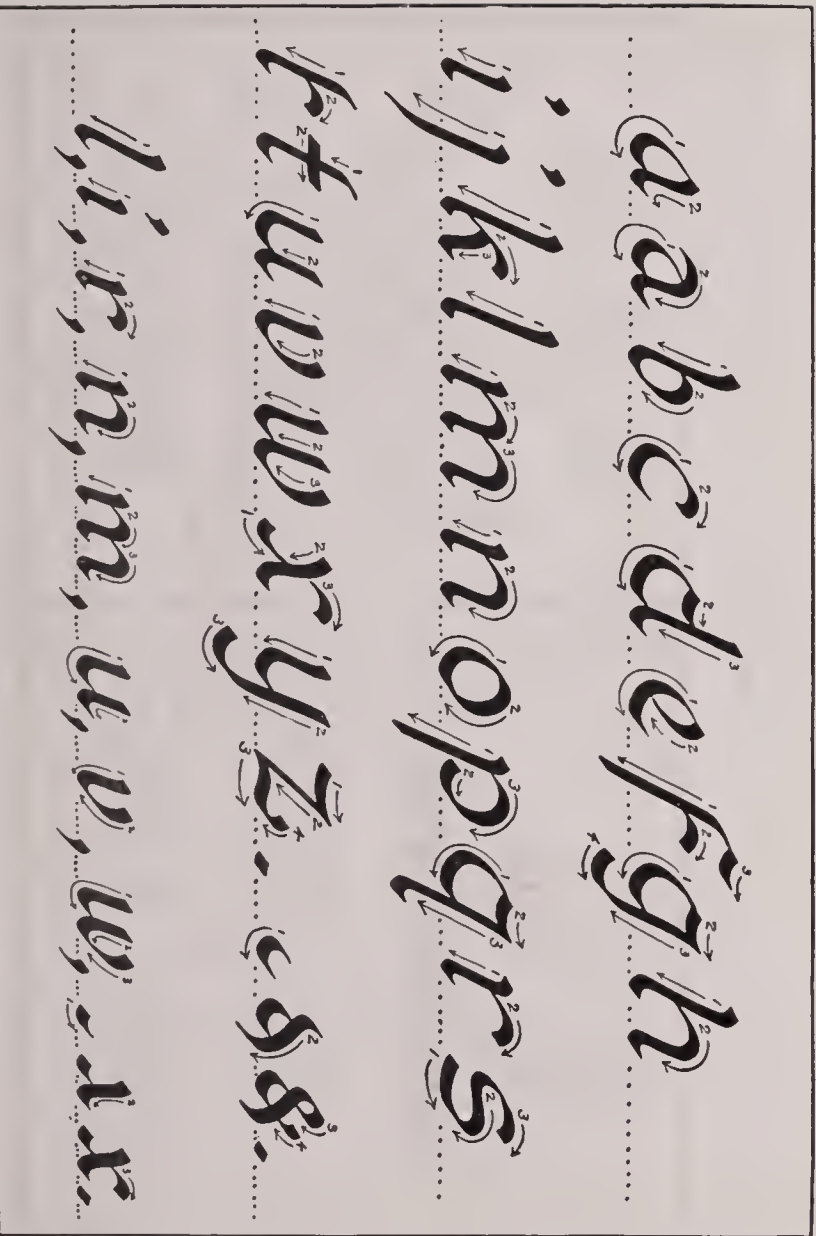 a a b c d e f g h
i j k l m n o p q r s
r t u v w x y z. c 8 &.
l, i, r, n, m, u, v, w, - x x.